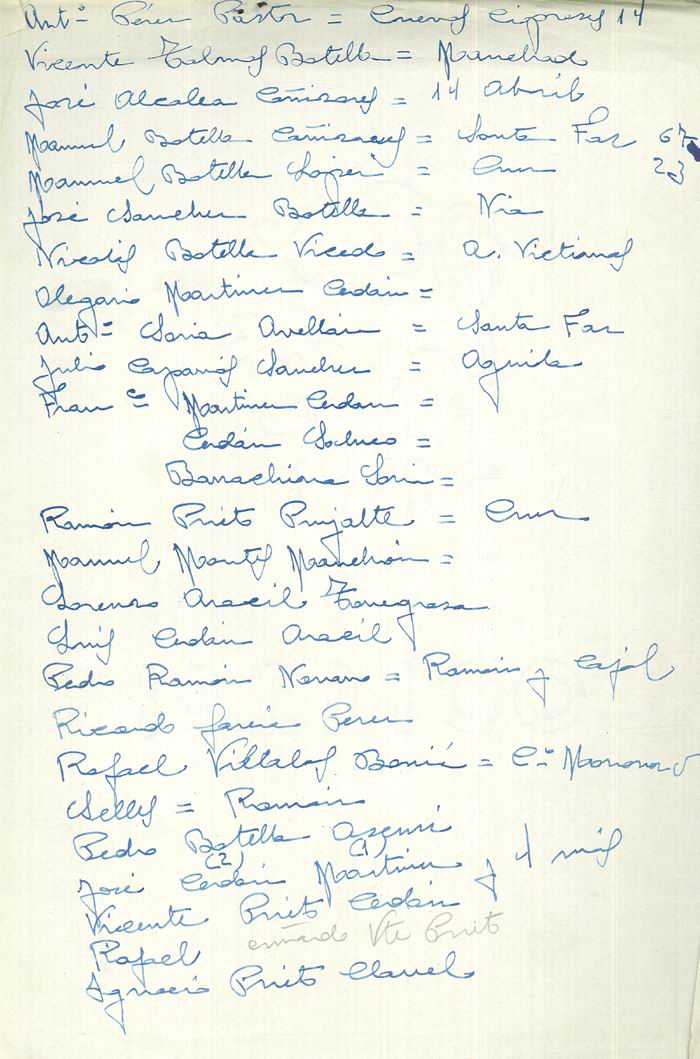 Antº Pérez Pastor = Cuevas Cipreses 14
Vicente Botella = Manchado
José Alcolea Cañizares = 14 Abril
Manuel Botella Cañizares = Santa Faz 67
Manuel Botella López = Cruz 23
José Sanchez Botella = Nia
Nicolás Botella Vicedo = A. Victimas
Olegario Martinez Cerdán =
Antº Soria Avellán = Santa Faz
Julio Sanchez = Aguila
Franco Martinez Cerdan =
Cerdán =
Soria =
Ramón Prieto Pujalte = Cruz
Manuel Mantes Manchón =
Lorenzo Aracil Torregrosa
Luis Cerdán Aracil
Pedro Ramón Navarro = Ramón y Cajal
Ricardo García Perez
Rafael Villalas =
Selles = Ramón
Pedro Botella Asensi
José Cerdán (2) Martinez (1) y 4 mas
Vicente Prieto Cerdán
Rafael cuñado Vte Prieto
Ignacio Prieto Clavel